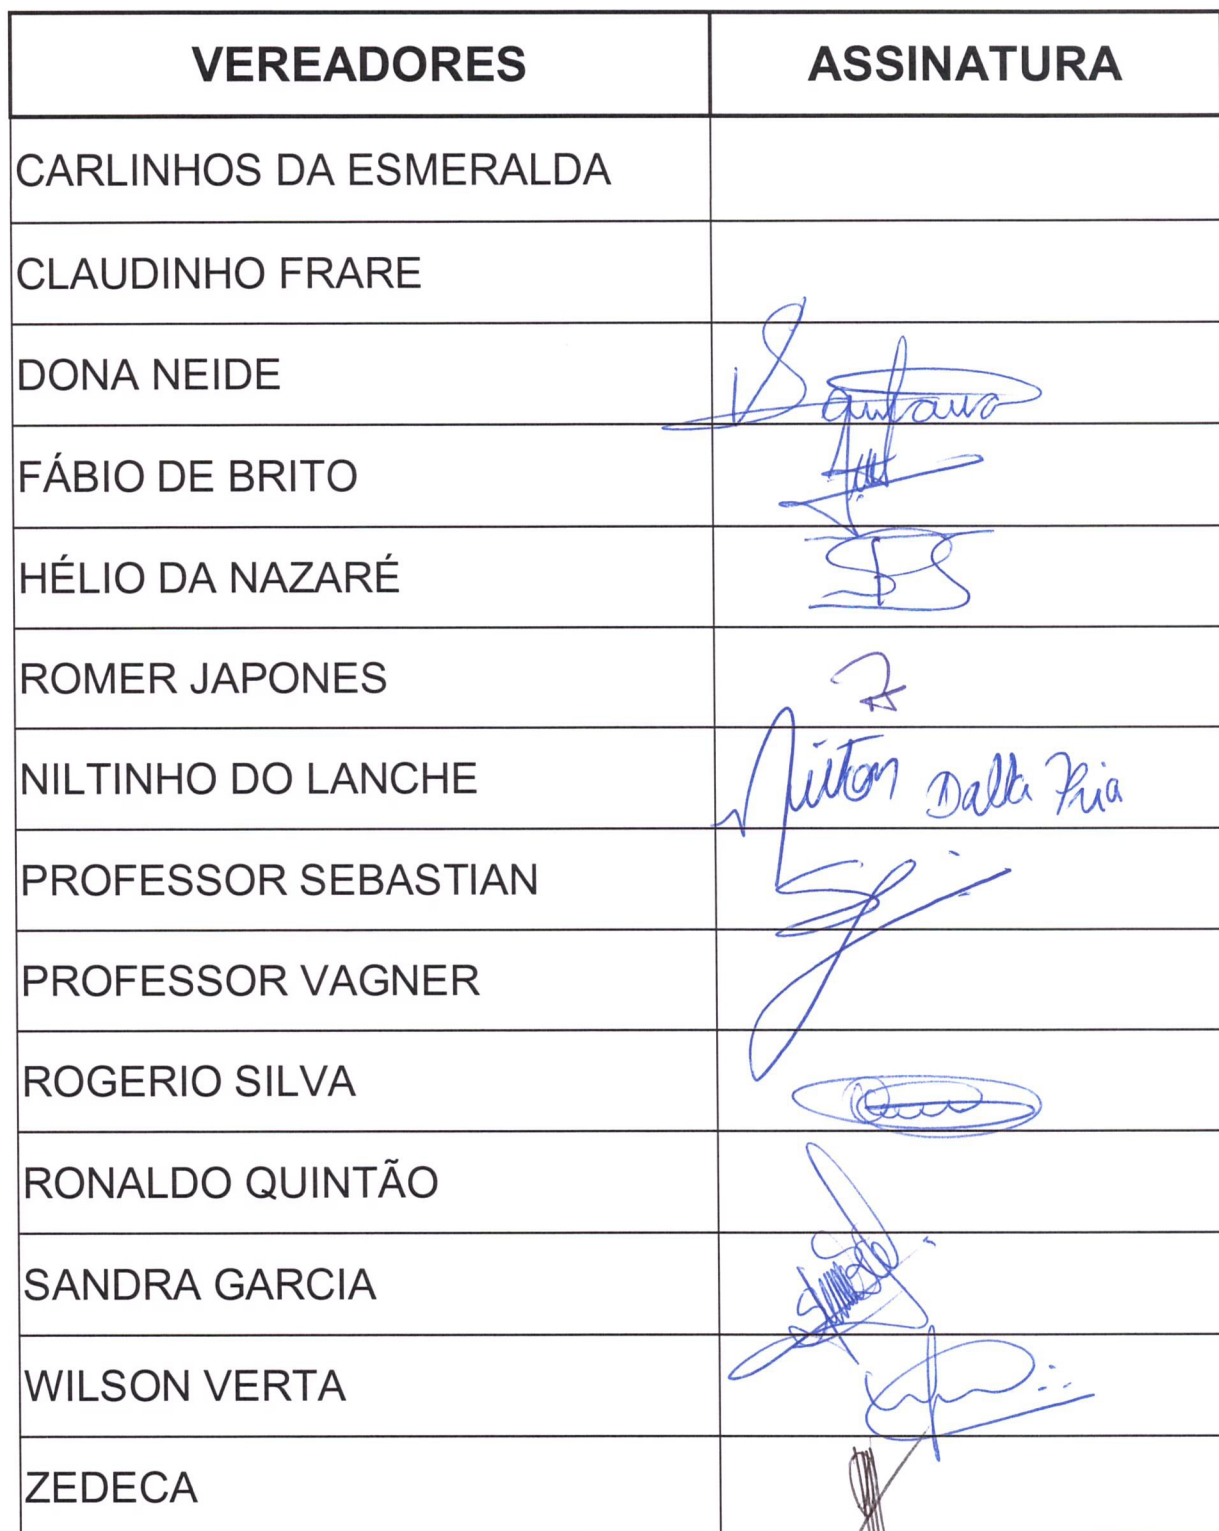 VEREADORES ASSINATURA
CARLINHOS DA ESMERALDA
CLAUDINHO FRARE
DONA NEIDE
FÁBIO DE BRITO
HÉLIO DA NAZARÉ
ROMER JAPONES
NILTINHO DO LANCHE Nilton Dalla Pria
PROFESSOR SEBASTIAN
PROFESSOR VAGNER
ROGERIO SILVA
RONALDO QUINTÃO
SANDRA GARCIA
WILSON VERTA
ZEDECA